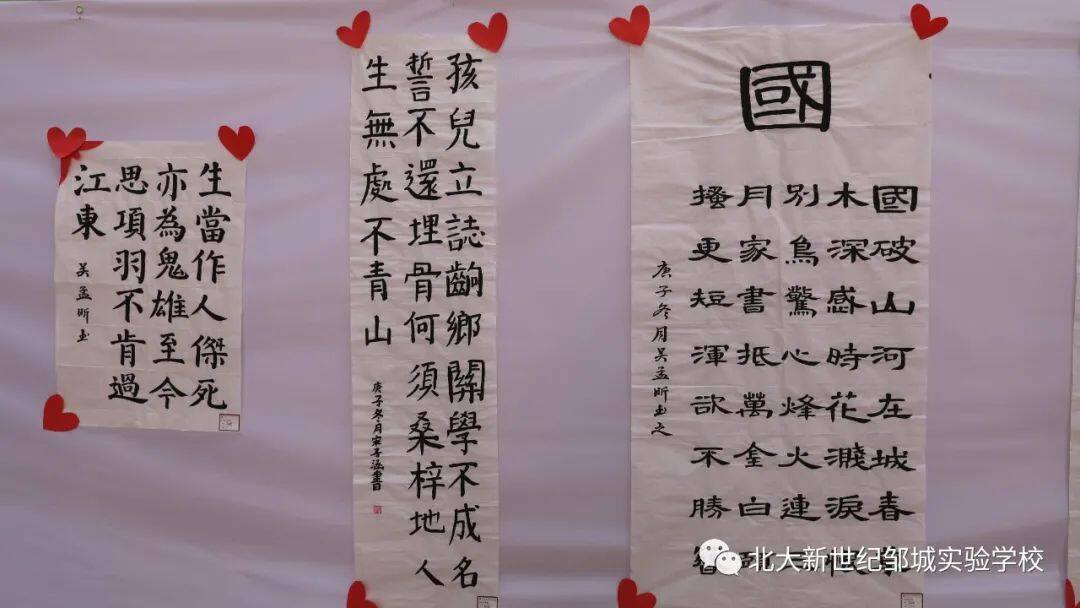 生當作人傑死
亦為鬼雄至今
思項羽不肯過
江東
吴孟昕书
孩兒立誌齣鄉關學不成名
誓不還埋骨何須桑梓地人
生無處不青山
庚子冬月宋子涵書
國
國破山河在城春
木深感時花濺淚
別鳥驚心烽火連
月家書抵萬金白
搔更短渾欲不勝
庚子冬月吴孟昕书之
北大新世纪邹城实验学校